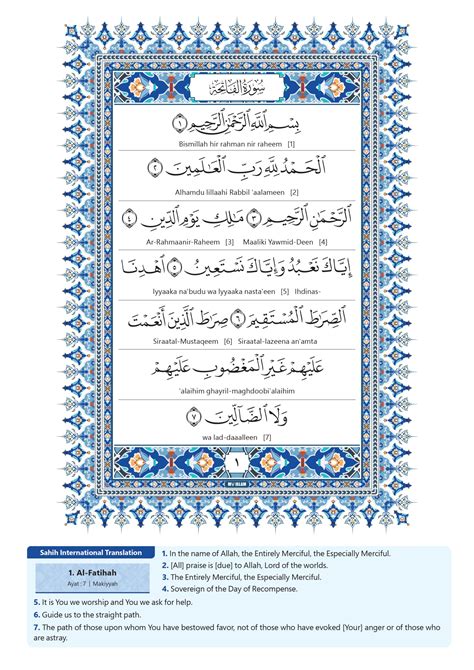 سُورَةُ الْفَاتِحَةِ
بِسْمِ ٱللَّهِ ٱلرَّحْمَٰنِ ٱلرَّحِيمِ ١
Bismillah hir rahman nir raheem [1]
ٱلْحَمْدُ لِلَّهِ رَبِّ ٱلْعَٰلَمِينَ ٢
Alhamdu lillaahi Rabbil 'aalameen [2]
ٱلرَّحْمَٰنِ ٱلرَّحِيمِ ٣ مَٰلِكِ يَوْمِ ٱلدِّينِ ٤
Ar-Rahmaanir-Raheem [3] Maaliki Yawmid-Deen [4]
إِيَّاكَ نَعْبُدُ وَإِيَّاكَ نَسْتَعِينُ ٥ ٱهْدِنَا
Iyyaaka na'budu wa Iyyaaka nasta'een [5] Ihdinas-
ٱلصِّرَٰطَ ٱلْمُسْتَقِيمَ ٦ صِرَٰطَ ٱلَّذِينَ أَنْعَمْتَ
Siraatal-Mustaqeem [6] Siraatal-lazeena an'amta
عَلَيْهِمْ غَيْرِ ٱلْمَغْضُوبِ عَلَيْهِمْ
'alaihim ghayril-maghdoobi'alaihim
وَلَا ٱلضَّآلِّينَ ٧
wa lad-daaalleen [7]
١
Sahih International Translation
1. Al-Fatihah
Ayat :7 | Makiyyah
1. In the name of Allah, the Entirely Merciful, the Especially Merciful.
2. [All] praise is [due] to Allah, Lord of the worlds.
3. The Entirely Merciful, the Especially Merciful.
4. Sovereign of the Day of Recompense.
5. It is You we worship and You we ask for help.
6. Guide us to the straight path.
7. The path of those upon whom You have bestowed favor, not of those who have evoked [Your] anger or of those who
are astray.